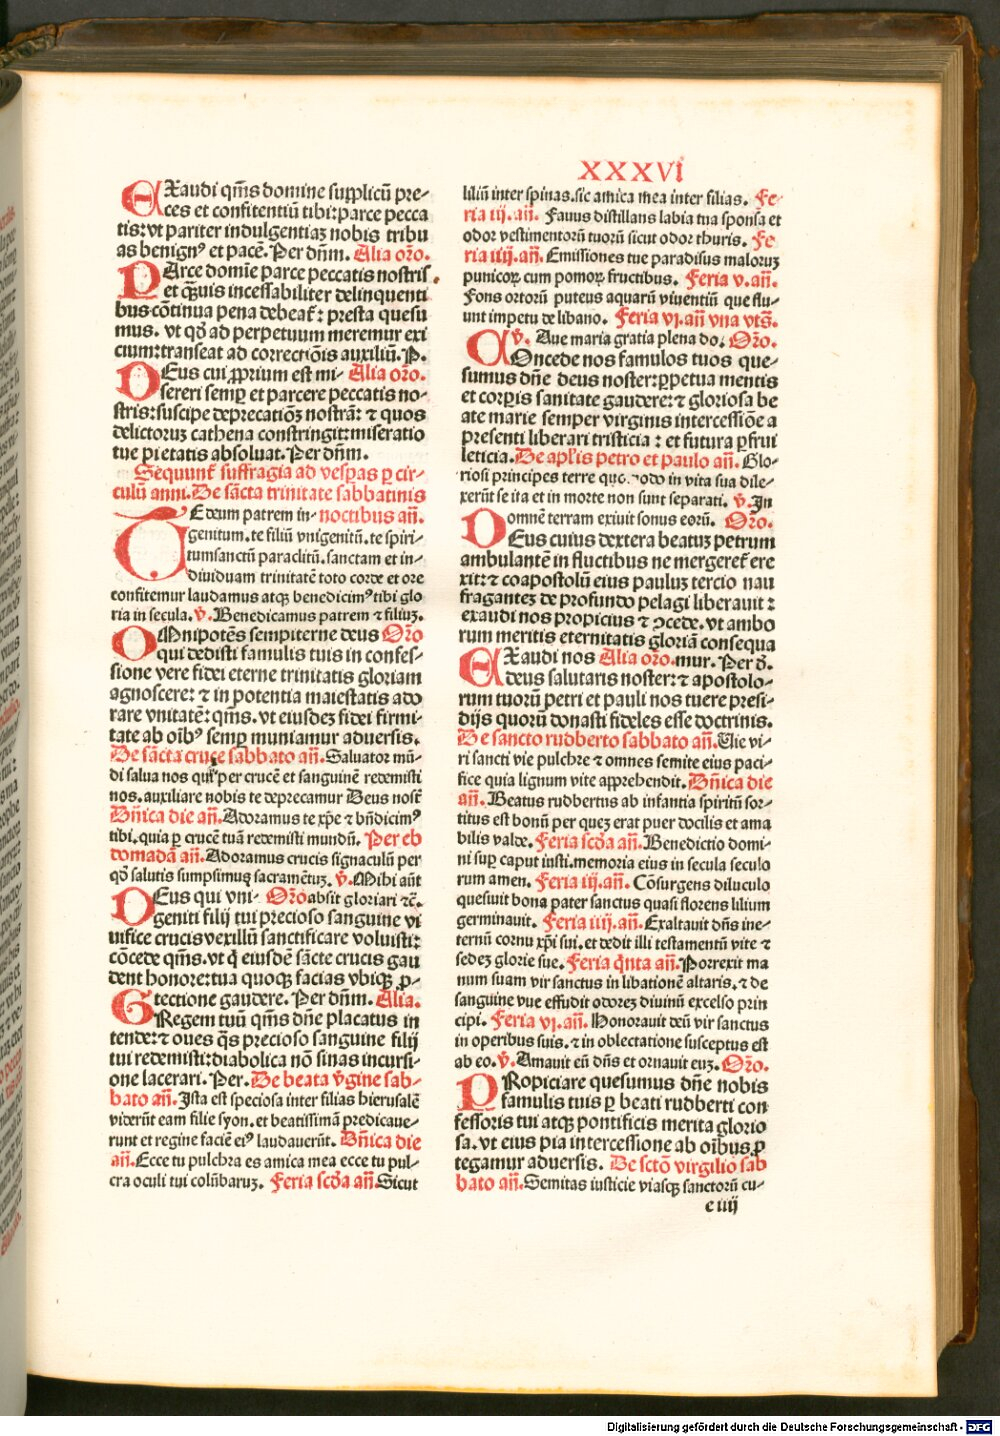 XXXVI
EXaudi qm̄s domine supplicū pre⸗
ces et confitentiū tibi: parce pecca
tis: vt pariter indulgentiaꝫ nobis tribu
as benignꝰ et pacē. Per dn̄m. Alia oro.
PArce domīe parce peccatis nostris
et q̄uis incessabiliter delinquenti
bus cōtinua pena debeat᷑: presta quesu
mus. vt qd̄ ad perpetuum meremur exi
cium: transeat ad correctiōis auxiliū. P.
DEus cui ꝓprium est mi⸗ Alia oro.
sereri semꝑ et parcere peccatis no⸗
stris: suscipe deprecatiōꝫ nostrā: ⁊ quos
delictoruꝫ cathena constringit: miseratio
tue pietatis absoluat. Per dn̄m.
Sequunt᷑ suffragia ad vesꝑas ꝑ cir⸗
culū anni. De sācta trinitate sabbatinis
TE deum patrem in⸗ noctibus an̄.
genitum. te filiū vnigenitū. te spiri⸗
tumsanctū paraclitū. sanctam et in⸗
diuiduam trinitatē toto corde et ore
confitemur laudamus atqꝫ benedicimꝰ tibi glo
ria in secula. V̄. Benedicamus patrem ⁊ filiuꝫ.
OMnipotēs sempiterne deus Oro
qui dedisti famulis tuis in confes⸗
sione vere fidei eterne trinitatis gloriam
agnoscere: ⁊ in potentia maiestatis ado
rare vnitatē: qm̄s. vt eiusdeꝫ fidei firmi⸗
tate ab oībꝰ semꝑ muniamur aduersis.
De sācta cruce sabbato an̄. Saluator mū⸗
di salua nos qui per crucē et sanguinē redemisti
nos. auxiliare nobis te deprecamur Deus nost᷑
Dn̄ica die an̄. Adoramus te xp̄e ⁊ bn̄dicimꝰ
tibi. quia ꝑ crucē tuā redemisti mundū. Per eb
domadā an̄. Adoramus crucis signaculū per
qd̄ salutis sumpsimus sacramētuꝫ. V̄. Mihi aūt
DEus qui vni⸗ Oro absit gloriari ⁊c̄.
geniti filij tui precioso sanguine vi
uifice crucis vexillū sanctificare voluisti:
cōcede qm̄s. vt q̄ eiusdē sācte crucis gau
dent honore: tua quoqꝫ facias vbiqꝫ ꝓ⸗
tectione gaudere. Per dn̄m. Alia.
GRegem tuū qm̄s dn̄e placatus in
tende: ⁊ oues q̄s precioso sanguine filij
tui redemisti: diabolica nō sinas incursi⸗
one lacerari. Per. De beata v̄gine sab⸗
bato an̄. Ista est speciosa inter filias hierusalē
viderūt eam filie syon. et beatissimā predicaue⸗
runt et regine faciē eiꝰ laudauerūt. Dn̄ica die
an̄. Ecce tu pulchra es amica mea ecce tu pul⸗
cra oculi tui colūbaruꝫ. Feria scd̄a an̄. Sicut
liliū inter spinas. sic amica mea inter filias. Fe⸗
ria iij. an̄. Fauus distillans labia tua sponsa et
odor vestimentorū tuorū sicut odor thuris. Fe
ria iiij. an̄. Emissiones tue paradisus maloruꝫ
punicoꝝ cum pomoꝝ fructibus. Feria v. an̄.
Fons ortorū puteus aquarū viuentiū que flu⸗
unt impetu de libano. Feria vi. an̄ vna vts̄.
V̄. Aue maria gratia plena do. Oro.
COncede nos famulos tuos que⸗
sumus dn̄e deus noster: ꝑpetua mentis
et corꝑis sanitate gaudere: ⁊ gloriosa be
ate marie semper virginis intercessiōe a
presenti liberari tristicia: et futura ꝑfrui
leticia. De apl̄is petro et paulo an̄. Glo⸗
riosi principes terre quomodo in vita sua dile⸗
xerūt se ita et in morte non sunt separati. V̄. In
omnē terram exiuit sonus eorū. Oro.
DEus cuius dextera beatuꝫ petrum
ambulantē in fluctibus ne mergeret᷑ ere
xit: ⁊ coapostolū eius pauluꝫ tercio nau
fraganteꝫ de profundo pelagi liberauit:
exaudi nos propicius ⁊ ꝯcede. vt ambo
rum meritis eternitatis gloriā consequa
EXaudi nos Alia oro. mur. Per d̄.
deus salutaris noster: ⁊ apostolo⸗
rum tuorū petri et pauli nos tuere presi⸗
dijs quorū donasti fideles esse doctrinis.
De sancto rudberto sabbato an̄. Uie vi⸗
ri sancti vie pulchre ⁊ omnes semite eius paci⸗
fice quia lignum vite apprehendit. Dn̄ica die
an̄. Beatus rudbertus ab infantia spiritū sor⸗
titus est bonū per queꝫ erat puer docilis et ama
bilis valde. Feria scd̄a an̄. Benedictio domi⸗
ni suꝑ caput iusti. memoria eius in secula seculo
rum amen. Feria iij. an̄. Cōsurgens diluculo
quesiuit bona pater sanctus quasi florens lilium
germinauit. Feria iiij. an̄. Exaltauit dn̄s ine⸗
ternū cornu xp̄i sui. et dedit illi testamentū vite ⁊
sedeꝫ glorie sue. Feria q̄nta an̄. Porrexit ma
num suam vir sanctus in libationē altaris. ⁊ de
sanguine vue effudit odoreꝫ diuinū excelso prin
cipi. Feria vi. an̄. Honorauit deū vir sanctus
in operibus suis. ⁊ in oblectatione susceptus est
ab eo. V̄. Amauit eū dn̄s et ornauit euꝫ. Oro.
PRopiciare quesumus dn̄e nobis
famulis tuis ꝑ beati rudberti con
fessoris tui atqꝫ pontificis merita glorio
sa. vt eius pia intercessione ab oībus ꝓ
tegamur aduersis. De sctō virgilio sab
bato an̄. Semitas iusticie viasqꝫ sanctorū cu⸗
e iiij
Digitalisierung gefördert durch die Deutsche Forschungsgemeinschaft - DFG